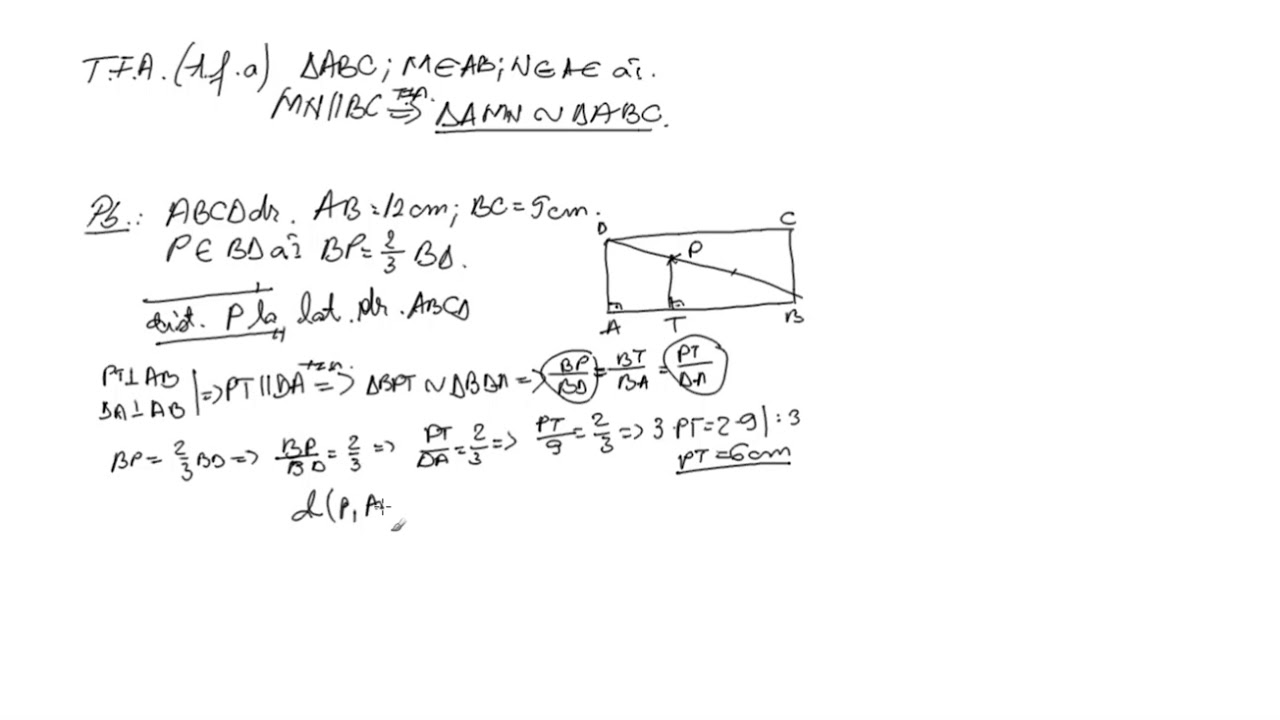 T.F.A. (t.f.a) ΔABC; M∈AB; N∈AC aî.
MN||BC =T.F.A.=> ΔAMN ~ ΔABC.
Pb.: ABCD dr. AB=12cm; BC=9cm.
P∈BD aî BP=2/3 BD.
dist. P la lat. dr. ABCD
D
C
P
A
T
B
PT⊥AB
DA⊥AB |=> PT||DA =T.F.A.=> ΔBPT ~ ΔBDA => BP/BD = BT/BA = PT/DA
BP = 2/3 BD => BP/BD = 2/3 => PT/DA = 2/3 => PT/9 = 2/3 => 3·PT=2·9|:3
PT=6cm
d(P, A